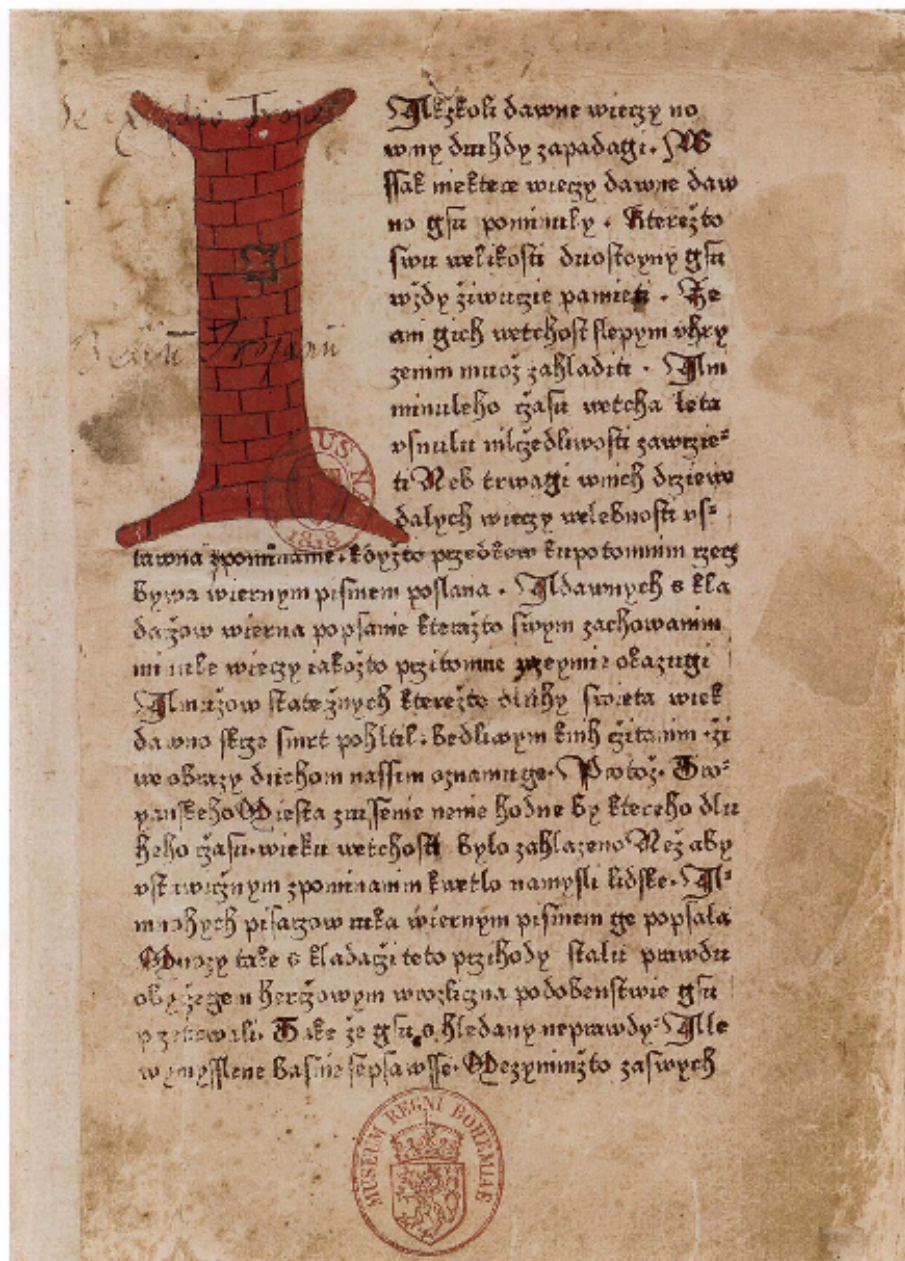 Ackzkoli dawne wieczy no
wny druhdy zapadagi. W
ssak niektere wieczy dawne daw
no gsu pominuly. Kterežto
swu welikosti duostoyny gsu
wždy žiwuczie pamieti. Že
ani gich wetchost slepym vhry
zenim muož zahladiti. Ani
minuleho čzasu wetcha leta
vsnulu mlčzedliwosti zawrzie-
ti Neb trwagi wnich drziewe
dalych wieczy welebnosti vs-
tawna zpominanie. kdyžto przedkow kupotomnim rzecz
bywa wiernym pismem poslana. A dawnych skla
dačzow wierna popsanie kterážto swym zachowanim
minule wieczy iakožto przitomne zrzeymie okazugi
A mužow statečžnych kterežto dluhy swieta wiek
dawno skrze smrt pohltil. bedliwym knih čžitanim ži
we obrazy duchom nassim oznamuge. Protož. Tro-
yanskeho Miesta zrussenie nenie hodne by ktereho dlu
heho čzasu wieku wetchosti bylo zahlazeno Než aby
vstawičžnym zpominanim kwetlo namysli lidske. A-
mnohych pisarzow ruka wiernym pismem ge popsala
Mnozy take skladačži teto przihody stalu prawdu
obyčžegem herčžowym wrozličzna podobenstwie gsu
Take že gsu ohledany neprawdy Ale
wymysslene basnie sepsawsse. Mezynimižto zaswych
MUSEUM REGNI BOHEMIAE
1818